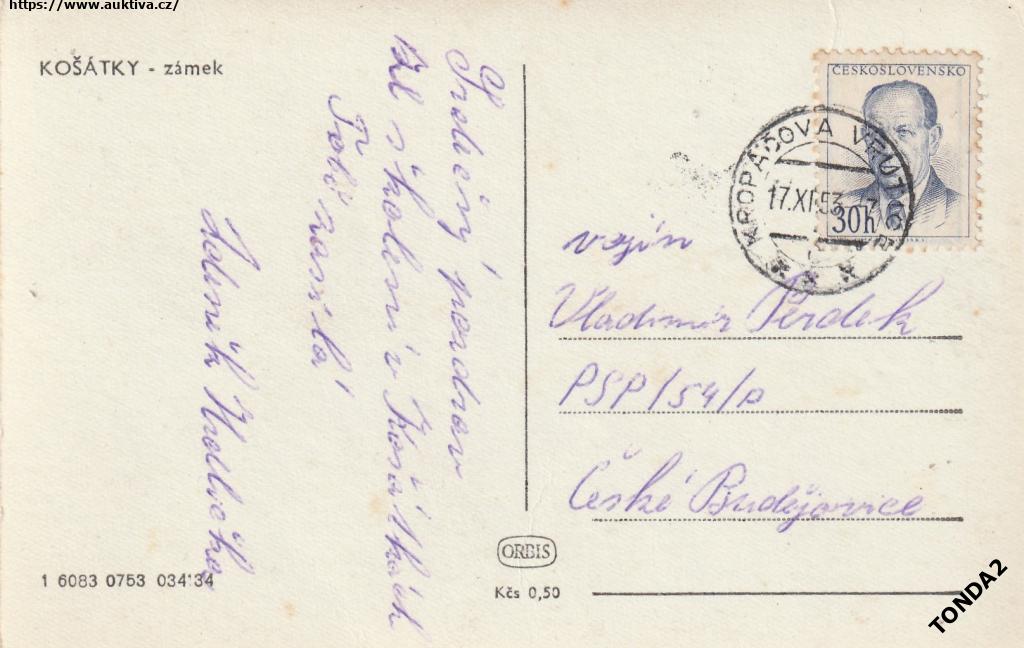 https://www.auktiva.cz/
KOŠÁTKY - zámek
Srdečný pozdrav
ze školení v Košátkách
Tobě zasílá
Zdeněk
ČESKOSLOVENSKO
30h
KROPÁČOVA VRUTICE
17.XI.53
vojín
Vladimír Perdek
PSP/54/p
České Budějovice
ORBIS
Kčs 0,50
1 6083 0753 034'34
TONDA2